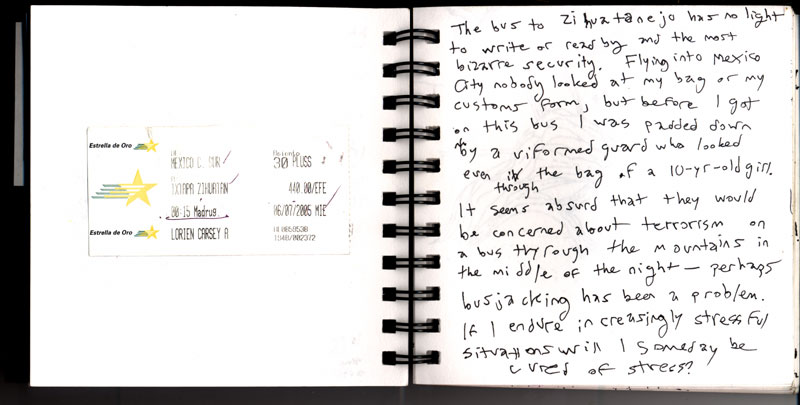 Estrella de Oro
MEXICO D. SUR
Asiento
30 PLUSS
IXTAPA ZIHUATAN
440.00/EFE
00:15 Madrug.
06/07/2005 MIE
Estrella de Oro
LORIEN CARSEY A
The bus to Zihuatanejo has no light
to write or read by and the most
bizarre security. Flying into Mexico
City nobody looked at my bag or my
customs form, but before I got
on this bus I was padded down
by a uniformed guard who looked
even through the bag of a 10-yr-old girl.
It seems absurd that they would
be concerned about terrorism on
a bus through the mountains in
the middle of the night — perhaps
busjacking has been a problem.
If I endure increasingly stressful
situations will I someday be
cured of stress?